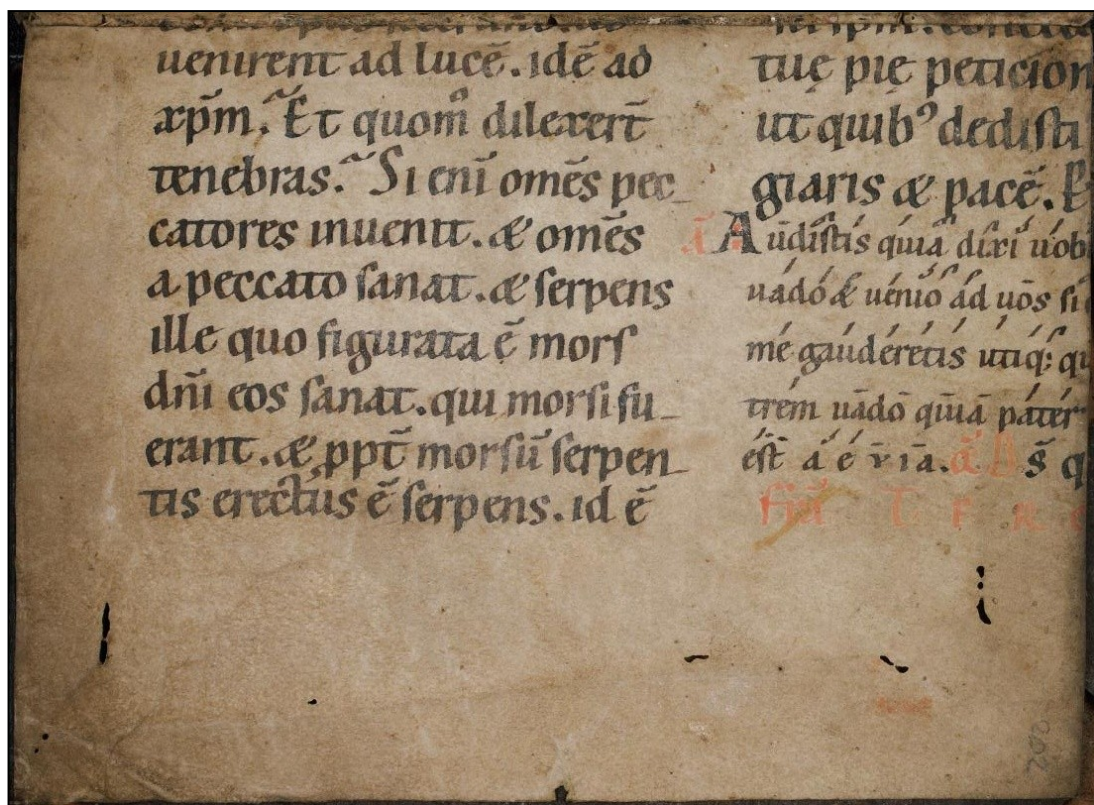 uenirent ad lucē. idē ad
xp̄m. Et quom̊ dilexert̄
tenebras. Si enī omēs pec-
catores inuenit. & omēs
a peccato sanat. & serpens
ille quo figurata ē mors
dn̄i eos sanat. qui morsi fu-
erant. & ppt̄ morsū serpen-
tis erectus ē serpens. id ē
tuę pię peticion
ut quib⁹ dedisti
giaris & pacē.
ā Audistis quia dixi uob
uado & uenio ad uos si
me gauderetis utiq; qu
trem uado quia pater
est a e v i a. ā
T F R